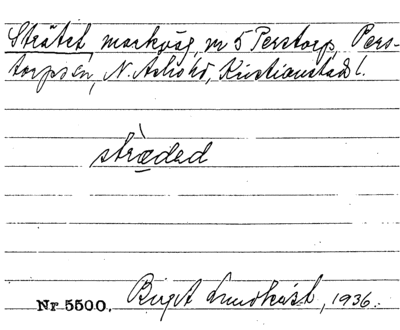 Strätet, markväg, nr 5 Perstorp, Pers-
torps sn, N. Åsbo hd, Kristianstads l.
stræ̀ded
Nr 5500. Birgit Lundkvist, 1936.